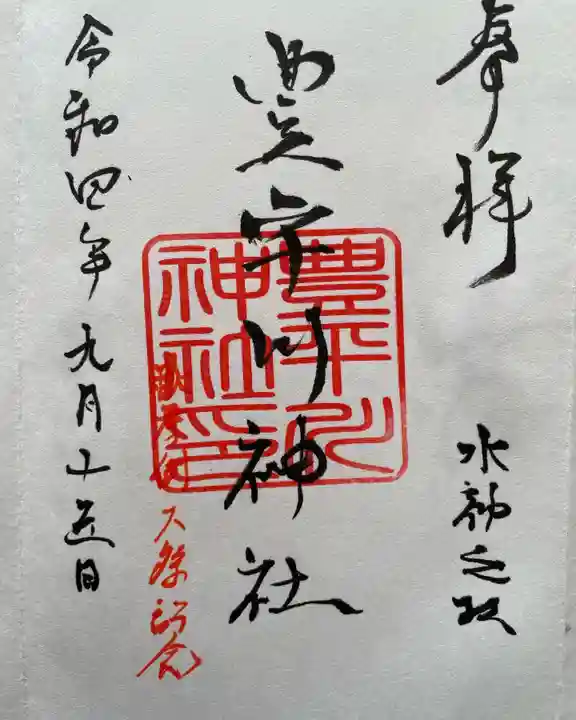 奉拝
水神之
豊平川神社
豊平川
神社印
大祭記念
令和四年九月十五日